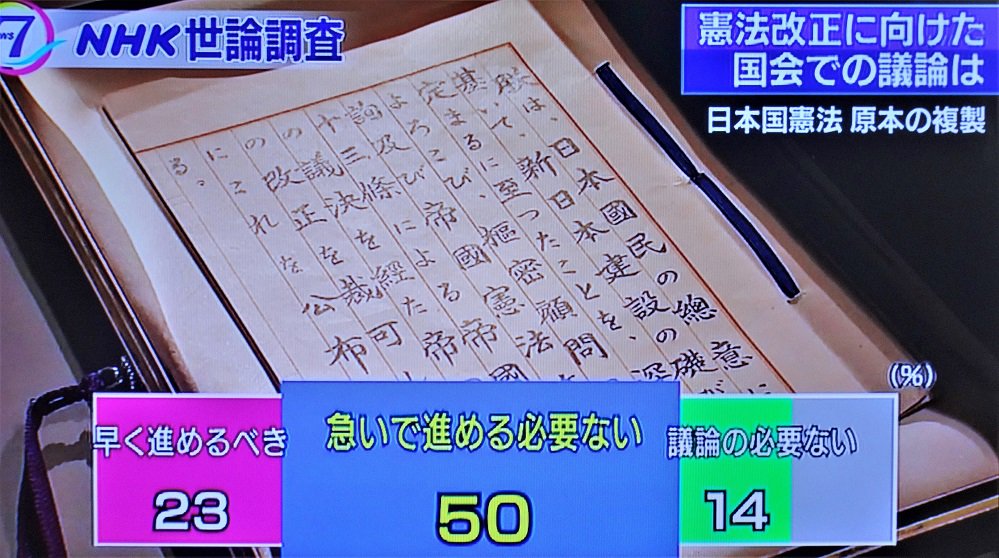 ws7
NHK世論調査
憲法改正に向けた
国会での議論は
日本国憲法 原本の複製
朕は、日本國民の總意に
基いて、新日本建設の礎が
定まるに至つたことを、深
よろこび、樞密顧問
諮詢及び帝國憲法
十三條による帝國
の議決を経た帝
の改正を裁可
にこれを公布
る。
(%)
早く進めるべき
23
急いで進める必要ない
50
議論の必要ない
14